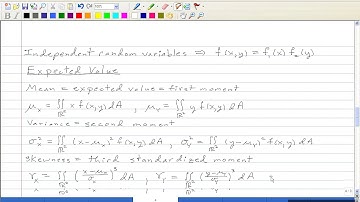 Independent random variables ⇒ f(x,y) = f₁(x) f₂(y)
Expected Value
Mean = expected value = first moment
μₓ = ∬ x f(x,y) dA , μᵧ = ∬ y f(x,y) dA
ℝ² ℝ²
Variance = second moment
σₓ² = ∬ (x-μₓ)² f(x,y) dA , σᵧ² = ∬ (y-μᵧ)² f(x,y) dA
ℝ² ℝ²
Skewness = third standardized moment
γₓ = ∬ (x-μₓ/σₓ)³ dA , γᵧ = ∬ (y-μᵧ/σᵧ)³ dA
ℝ² ℝ²